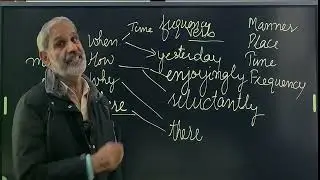 Time frequency Manner
Verb Place
when yesterday Time
How enjoyingly Frequency
Why reluctantly
there